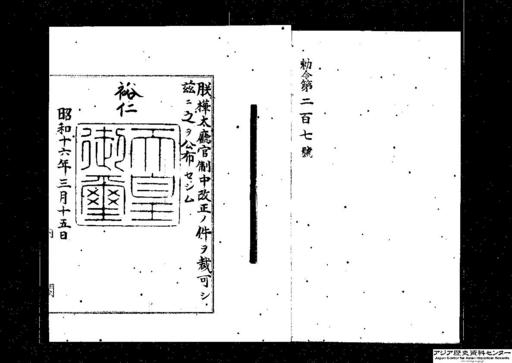 勅令第二百七號
朕樺太廳官制中改正ノ件ヲ裁可シ
茲ニ之ヲ公布セシム
裕仁
天皇
御璽
昭和十六年三月十五日
アジア歴史資料センター
Japan Center for Asian Historical Records